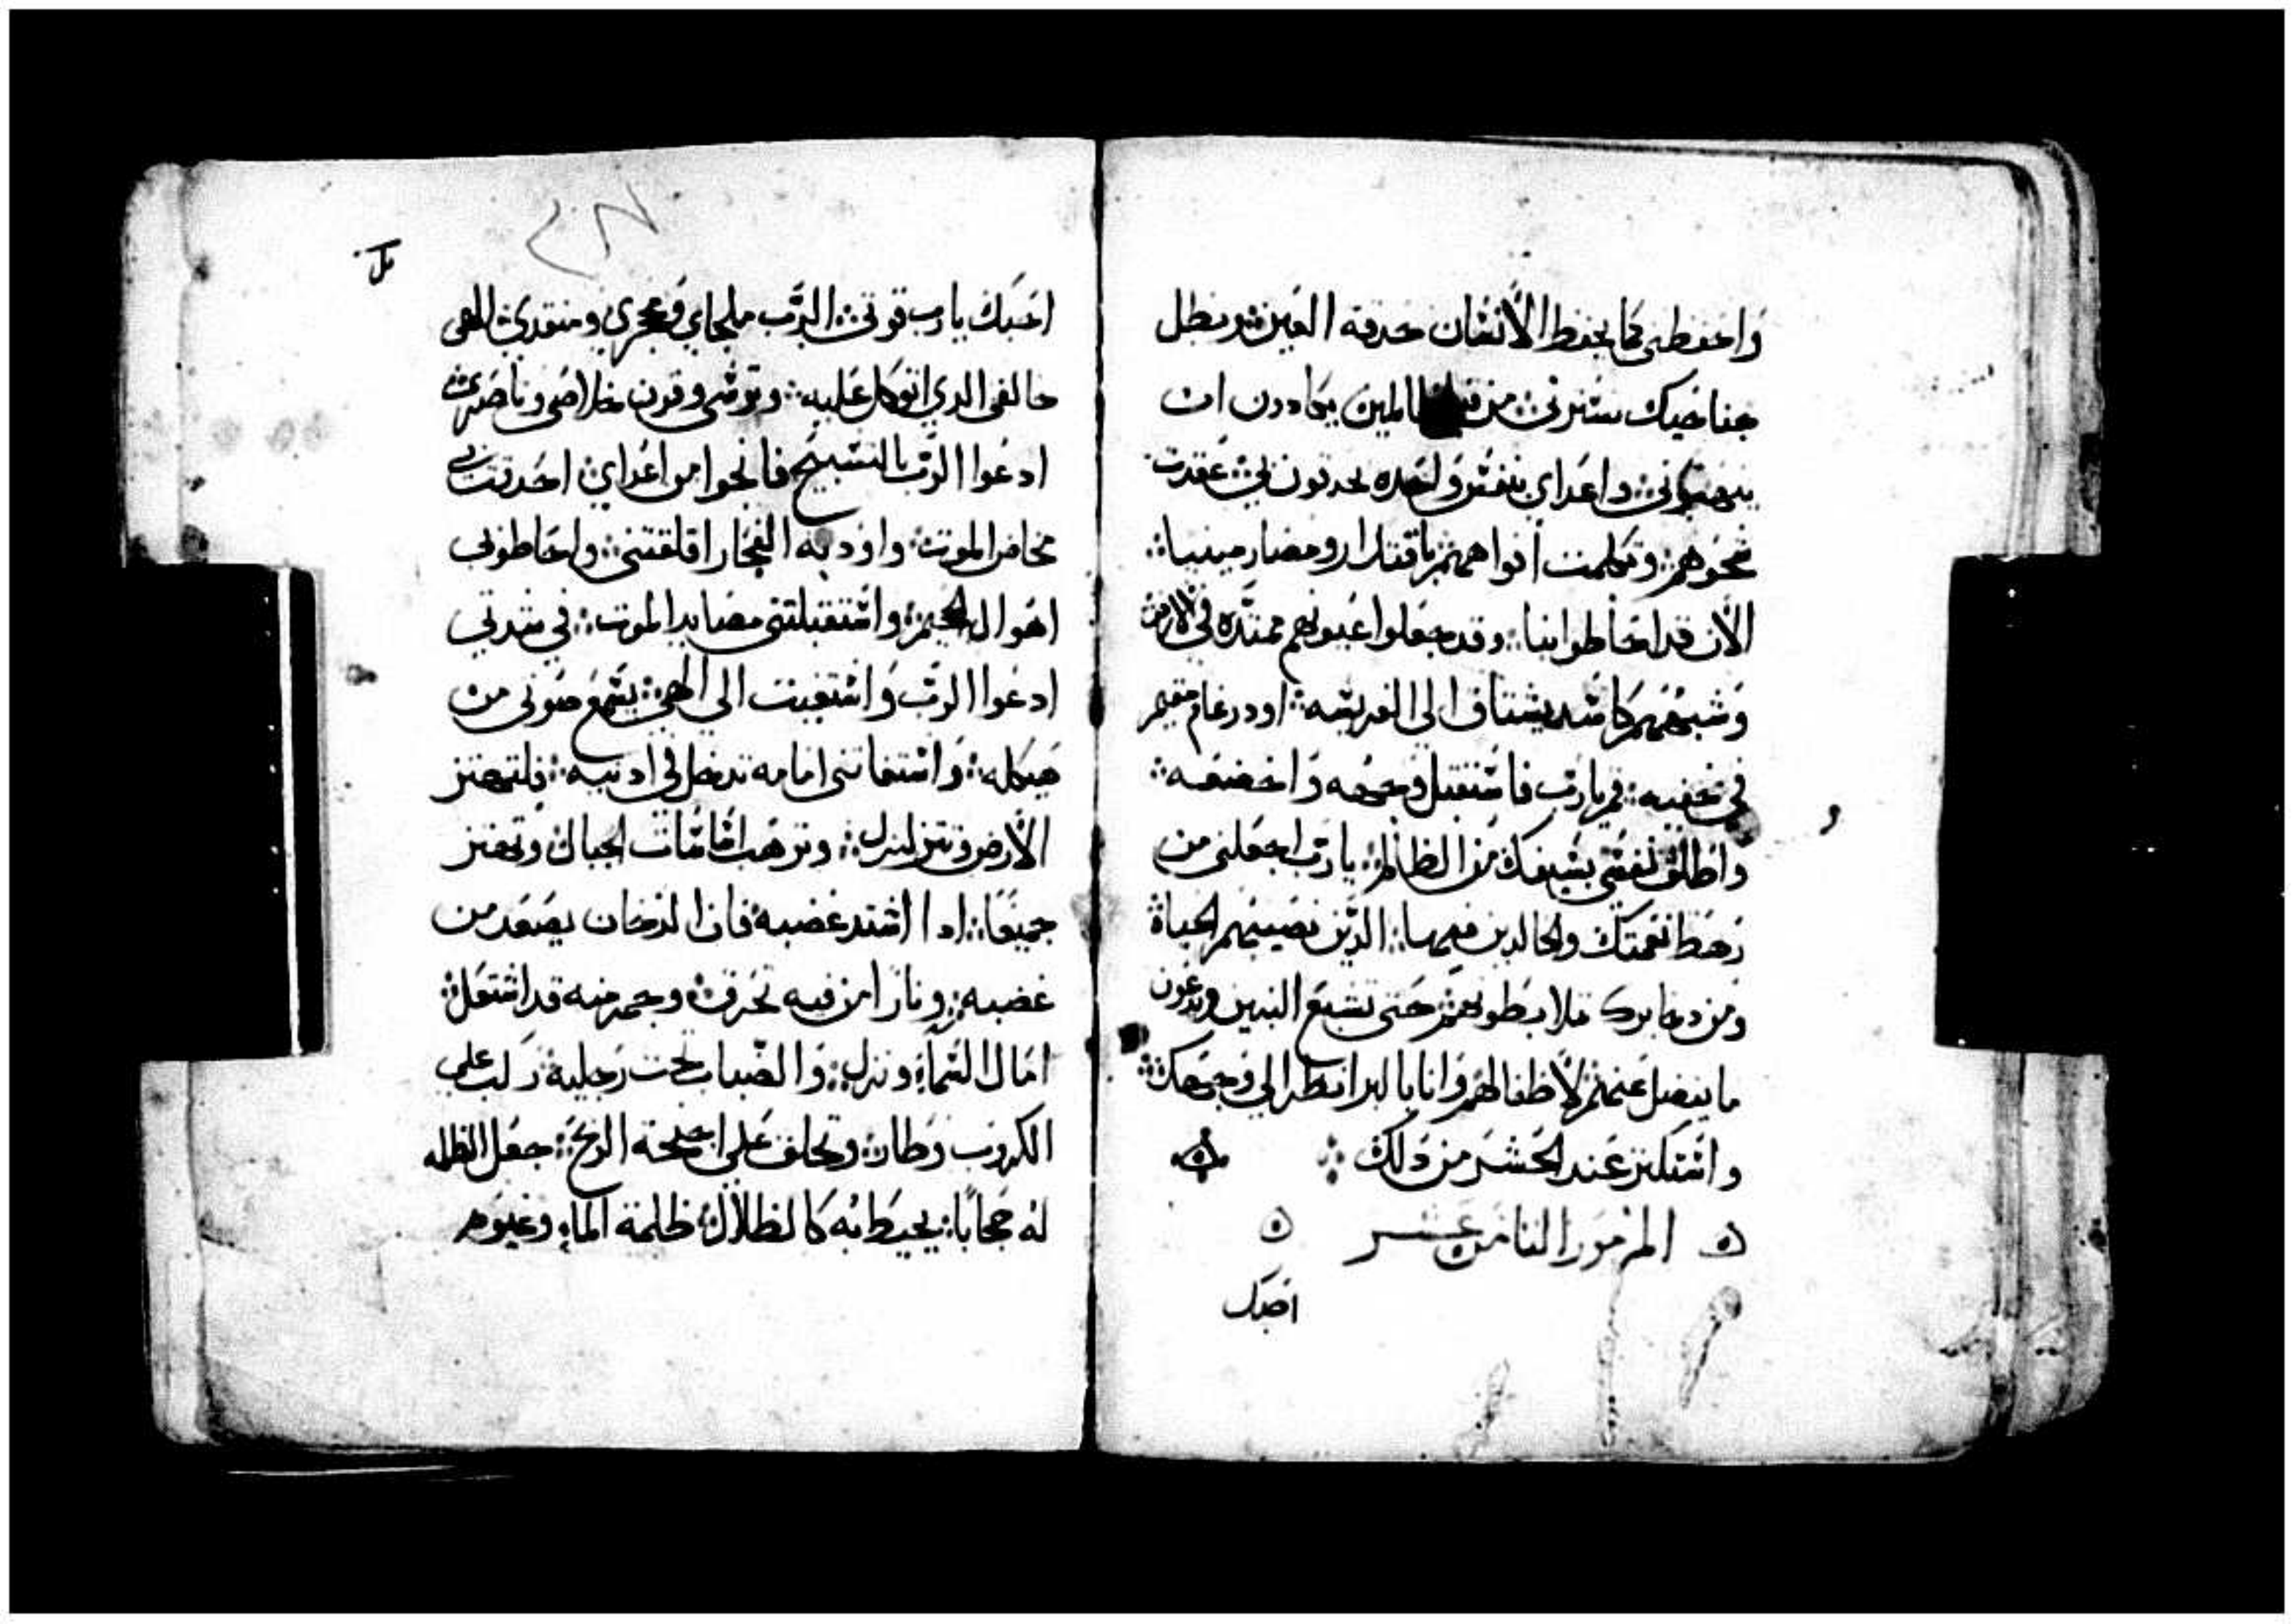 واحفظنى كما يحفظ الانسان حدقة العين وبظل
جناحيك تسترنى من المين يكادون ان
واعداى بنفس واحده يحدقون بى عقدت
شحومهم وتكلمت افواههم باقتدار
الان قد احاطوا بنا وقد جعلوا عيونهم ممتده فى الارض
وشبههم كاسد يشتاق الى الفريسه او درغام مقيم
فى خفيه قم يارب فاستقبل وجهه واخضعه
واطلق نفسى بسيفك من الظالم يارب اجعلنى من
رهط نعمتك والخالدين فيها الدين نصيبهم الحياة
ومن دخايرك بطونهم حتى تشبع البنين ويدعون
ما يفضل عنهم لاطفالهم وانا بالبر انظر الى وجهك
واشتكن عند الحشر من دلك
المزمور الثامن عشر
احبك
٣٨
احبك يارب قوتى الرب ملجاى ومنقدى الهى
خالقى الدي اتوكل عليه وترسى وقرن خلاصى وناصرى
ادعوا الرب بالتسبيح فانجوا من اعداي احدقت بى
مخاض الموت واودية الفجار اقلقتنى واحاطونى
اهوال الجحيم واستقبلتنى مصايد الموت فى شدتى
ادعوا الرب واستغيت الي الهى يسمع صوتى من
هيكله واستغاتتى امامه تدخل فى ادنيه فلتهتز
الارض وتتزلزل وترهب اساسات الجبال وتهتز
جميعا ادا اشتد غضبه فان الدخان يصعد من
غضبه ونارا من فيه تحرق وجمر منه قد اشتعل
امال السماء ونزل والضباب تحت رجليه ركب علي
الكروب وطار وتحلق علي اجنحة الريح جعل الظلمه
له حجابا يحيط به كالظلال ظلمة الماء وغيوم